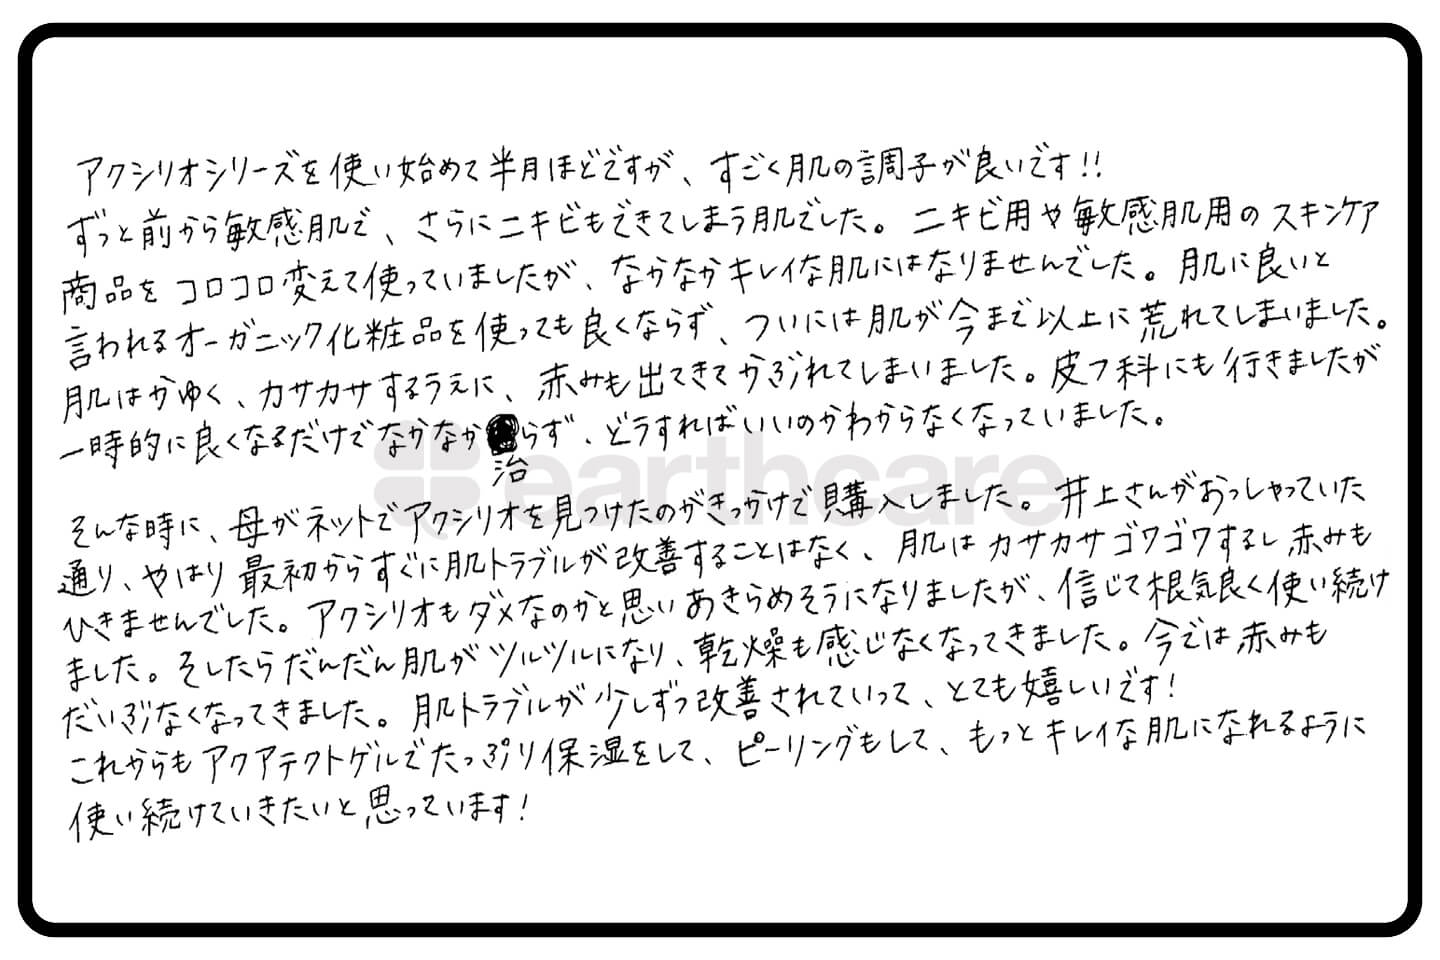 アクシリオシリーズを使い始めて半月ほどですが、すごく肌の調子が良いです!!
ずっと前から敏感肌で、さらにニキビもできてしまう肌でした。ニキビ用や敏感肌用のスキンケア
商品をコロコロ変えて使っていましたが、なかなかキレイな肌にはなりませんでした。肌に良いと
言われるオーガニック化粧品を使っても良くならず、ついには肌が今まで以上に荒れてしまいました。
肌はかゆく、カサカサするうえに、赤みも出てきてかぶれてしまいました。皮フ科にも行きましたが
一時的に良くなるだけでなかなか治らず、どうすればいいのかわからなくなっていました。
earthcare
そんな時に、母がネットでアクシリオを見つけたのがきっかけで購入しました。井上さんがおっしゃっていた
通り、やはり最初からすぐに肌トラブルが改善することはなく、肌はカサカサゴワゴワするし赤みも
ひきませんでした。アクシリオもダメなのかと思いあきらめそうになりましたが、信じて根気良く使い続け
ました。そしたらだんだん肌がツルツルになり、乾燥も感じなくなってきました。今では赤みも
だいぶなくなってきました。肌トラブルが少しずつ改善されていって、とても嬉しいです!
これからもアクアテクトゲルでたっぷり保湿をして、ピーリングもして、もっとキレイな肌になれるように
使い続けていきたいと思っています!